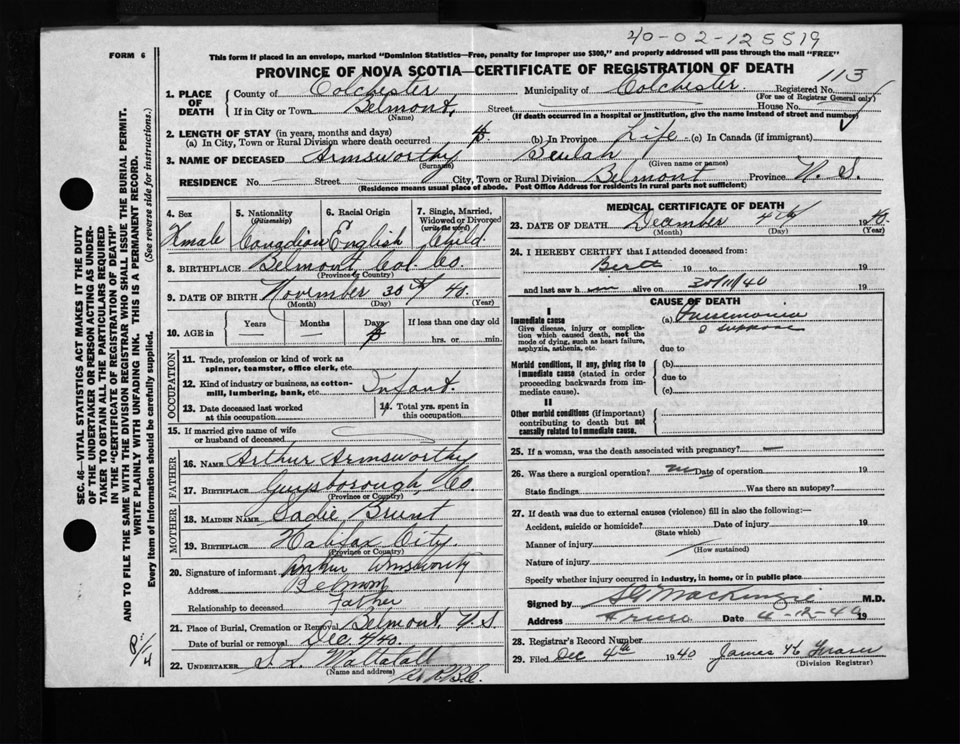 40-02-125519
FORM 6
This form if placed in an envelope, marked "Dominion Statistics—Free, penalty for improper use $300," and properly addressed will pass through the mail "FREE"
PROVINCE OF NOVA SCOTIA—CERTIFICATE OF REGISTRATION OF DEATH
113
1. PLACE OF DEATH County of Colchester Municipality of Colchester Registered No.
(For use of Registrar General only)
If in City or Town Belmont, Street House No.
(Name) (If death occurred in a hospital or institution, give the name instead of street and number)
2. LENGTH OF STAY (in years, months and days)
(a) In City, Town or Rural Division where death occurred (b) In Province Life (c) In Canada (if immigrant)
3. NAME OF DECEASED Armsworthy Beulah
(Surname) (Given name or names)
RESIDENCE No. Street City, Town or Rural Division Belmont Province N. S.
(Residence means usual place of abode. Post Office Address for residents in rural parts not sufficient)
4. Sex 5. Nationality (Citizenship) 6. Racial Origin 7. Single, Married, Widowed or Divorced (write the word)
Female Canadian English Child.
8. BIRTHPLACE Belmont, Col. Co
(Province or Country)
9. DATE OF BIRTH November 30th 40.
(Month) (Day) (Year)
10. AGE in Years Months Days If less than one day old
hrs. or min.
OCCUPATION
11. Trade, profession or kind of work as spinner, teamster, office clerk, etc.
12. Kind of industry or business, as cotton-mill, lumbering, bank, etc. Infant.
13. Date deceased last worked at this occupation
14. Total yrs. spent in this occupation
15. If married give name of wife or husband of deceased
FATHER
16. NAME Arthur Armsworthy
17. BIRTHPLACE Guysborough, Co
(Province or Country)
MOTHER
18. MAIDEN NAME Sadie Brunt
19. BIRTHPLACE Halifax City.
(Province or Country)
20. Signature of informant Arthur Armsworthy
Address Belmont
Relationship to deceased father
21. Place of Burial, Cremation or Removal Belmont, N.S.
Date of burial or removal Dec. 4/40.
22. UNDERTAKER
(Name and address)
MEDICAL CERTIFICATE OF DEATH
23. DATE OF DEATH December 4th 1940.
(Month) (Day) (Year)
24. I HEREBY CERTIFY that I attended deceased from:
Birth 19 to 19
and last saw h alive on 30/11/40 19
CAUSE OF DEATH
I
Immediate cause
Give disease, injury or complication which caused death, not the mode of dying, such as heart failure, asphyxia, asthenia, etc.
(a) Pneumonia
I suppose
due to
Morbid conditions, if any, giving rise to immediate cause (stated in order proceeding backwards from immediate cause).
(b)
due to
(c)
II
Other morbid conditions (if important) contributing to death but not causally related to immediate cause.
25. If a woman, was the death associated with pregnancy? —
26. Was there a surgical operation? no Date of operation 19
State findings Was there an autopsy?
27. If death was due to external causes (violence) fill in also the following:—
Accident, suicide or homicide? Date of injury 19
(State which)
Manner of injury
(How sustained)
Nature of injury
Specify whether injury occurred in industry, in home, or in public place
Signed by Mackenzie M.D.
Address Truro Date 4-12-40 19
28. Registrar's Record Number
29. Filed Dec 4th 1940 James
(Division Registrar)
SEC. 46—VITAL STATISTICS ACT MAKES IT THE DUTY
OF THE UNDERTAKER OR PERSON ACTING AS UNDER-
TAKER TO OBTAIN ALL THE PARTICULARS REQUIRED
IN THE "CERTIFICATE OF REGISTRATION OF DEATH"
AND TO FILE THE SAME WITH THE DIVISION REGISTRAR WHO SHALL ISSUE THE BURIAL PERMIT.
WRITE PLAINLY WITH UNFADING INK. THIS IS A PERMANENT RECORD.
Every item of information should be carefully supplied. (See reverse side for instructions.)